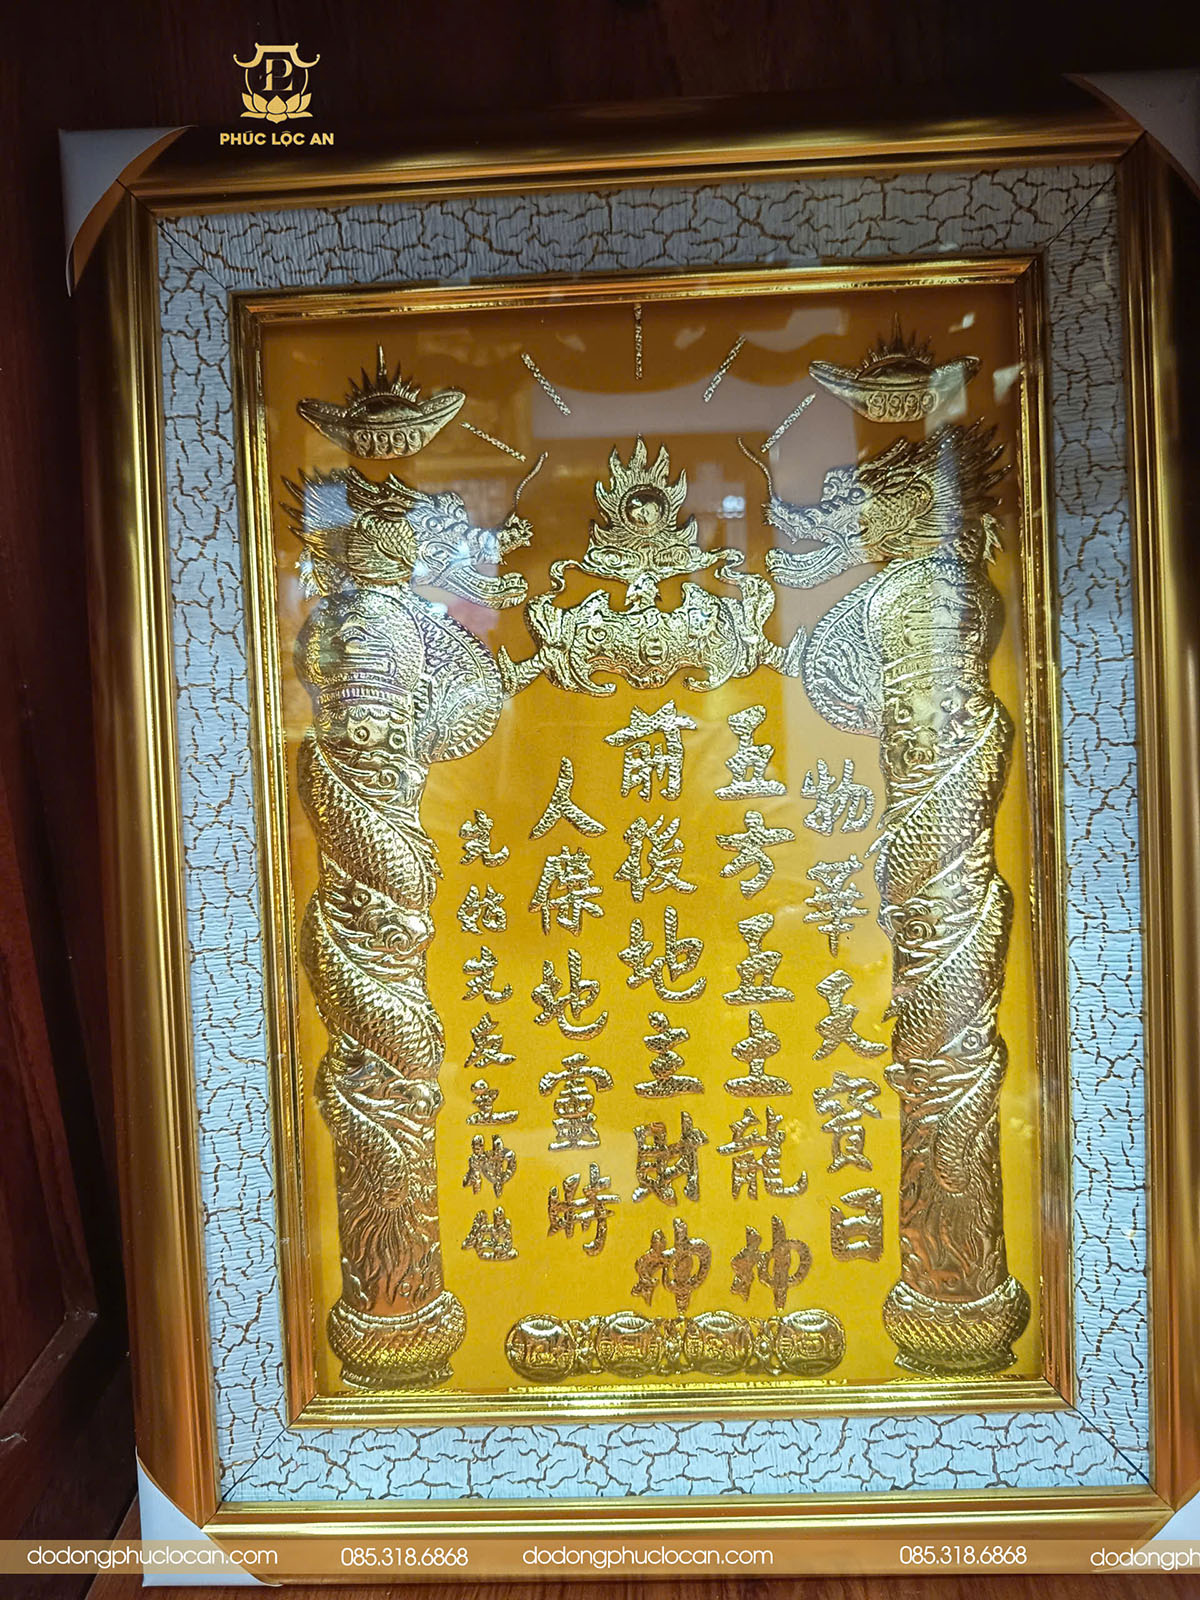 PL
PHÚC LỘC AN
9999
9999
物華天寶日
五方五土龍神
前後地主財神
人傑地靈時
友主神
dodongphuclocan.com
085.318.6868
dodongphuclocan.com
085.318.6868
dodongphucloc